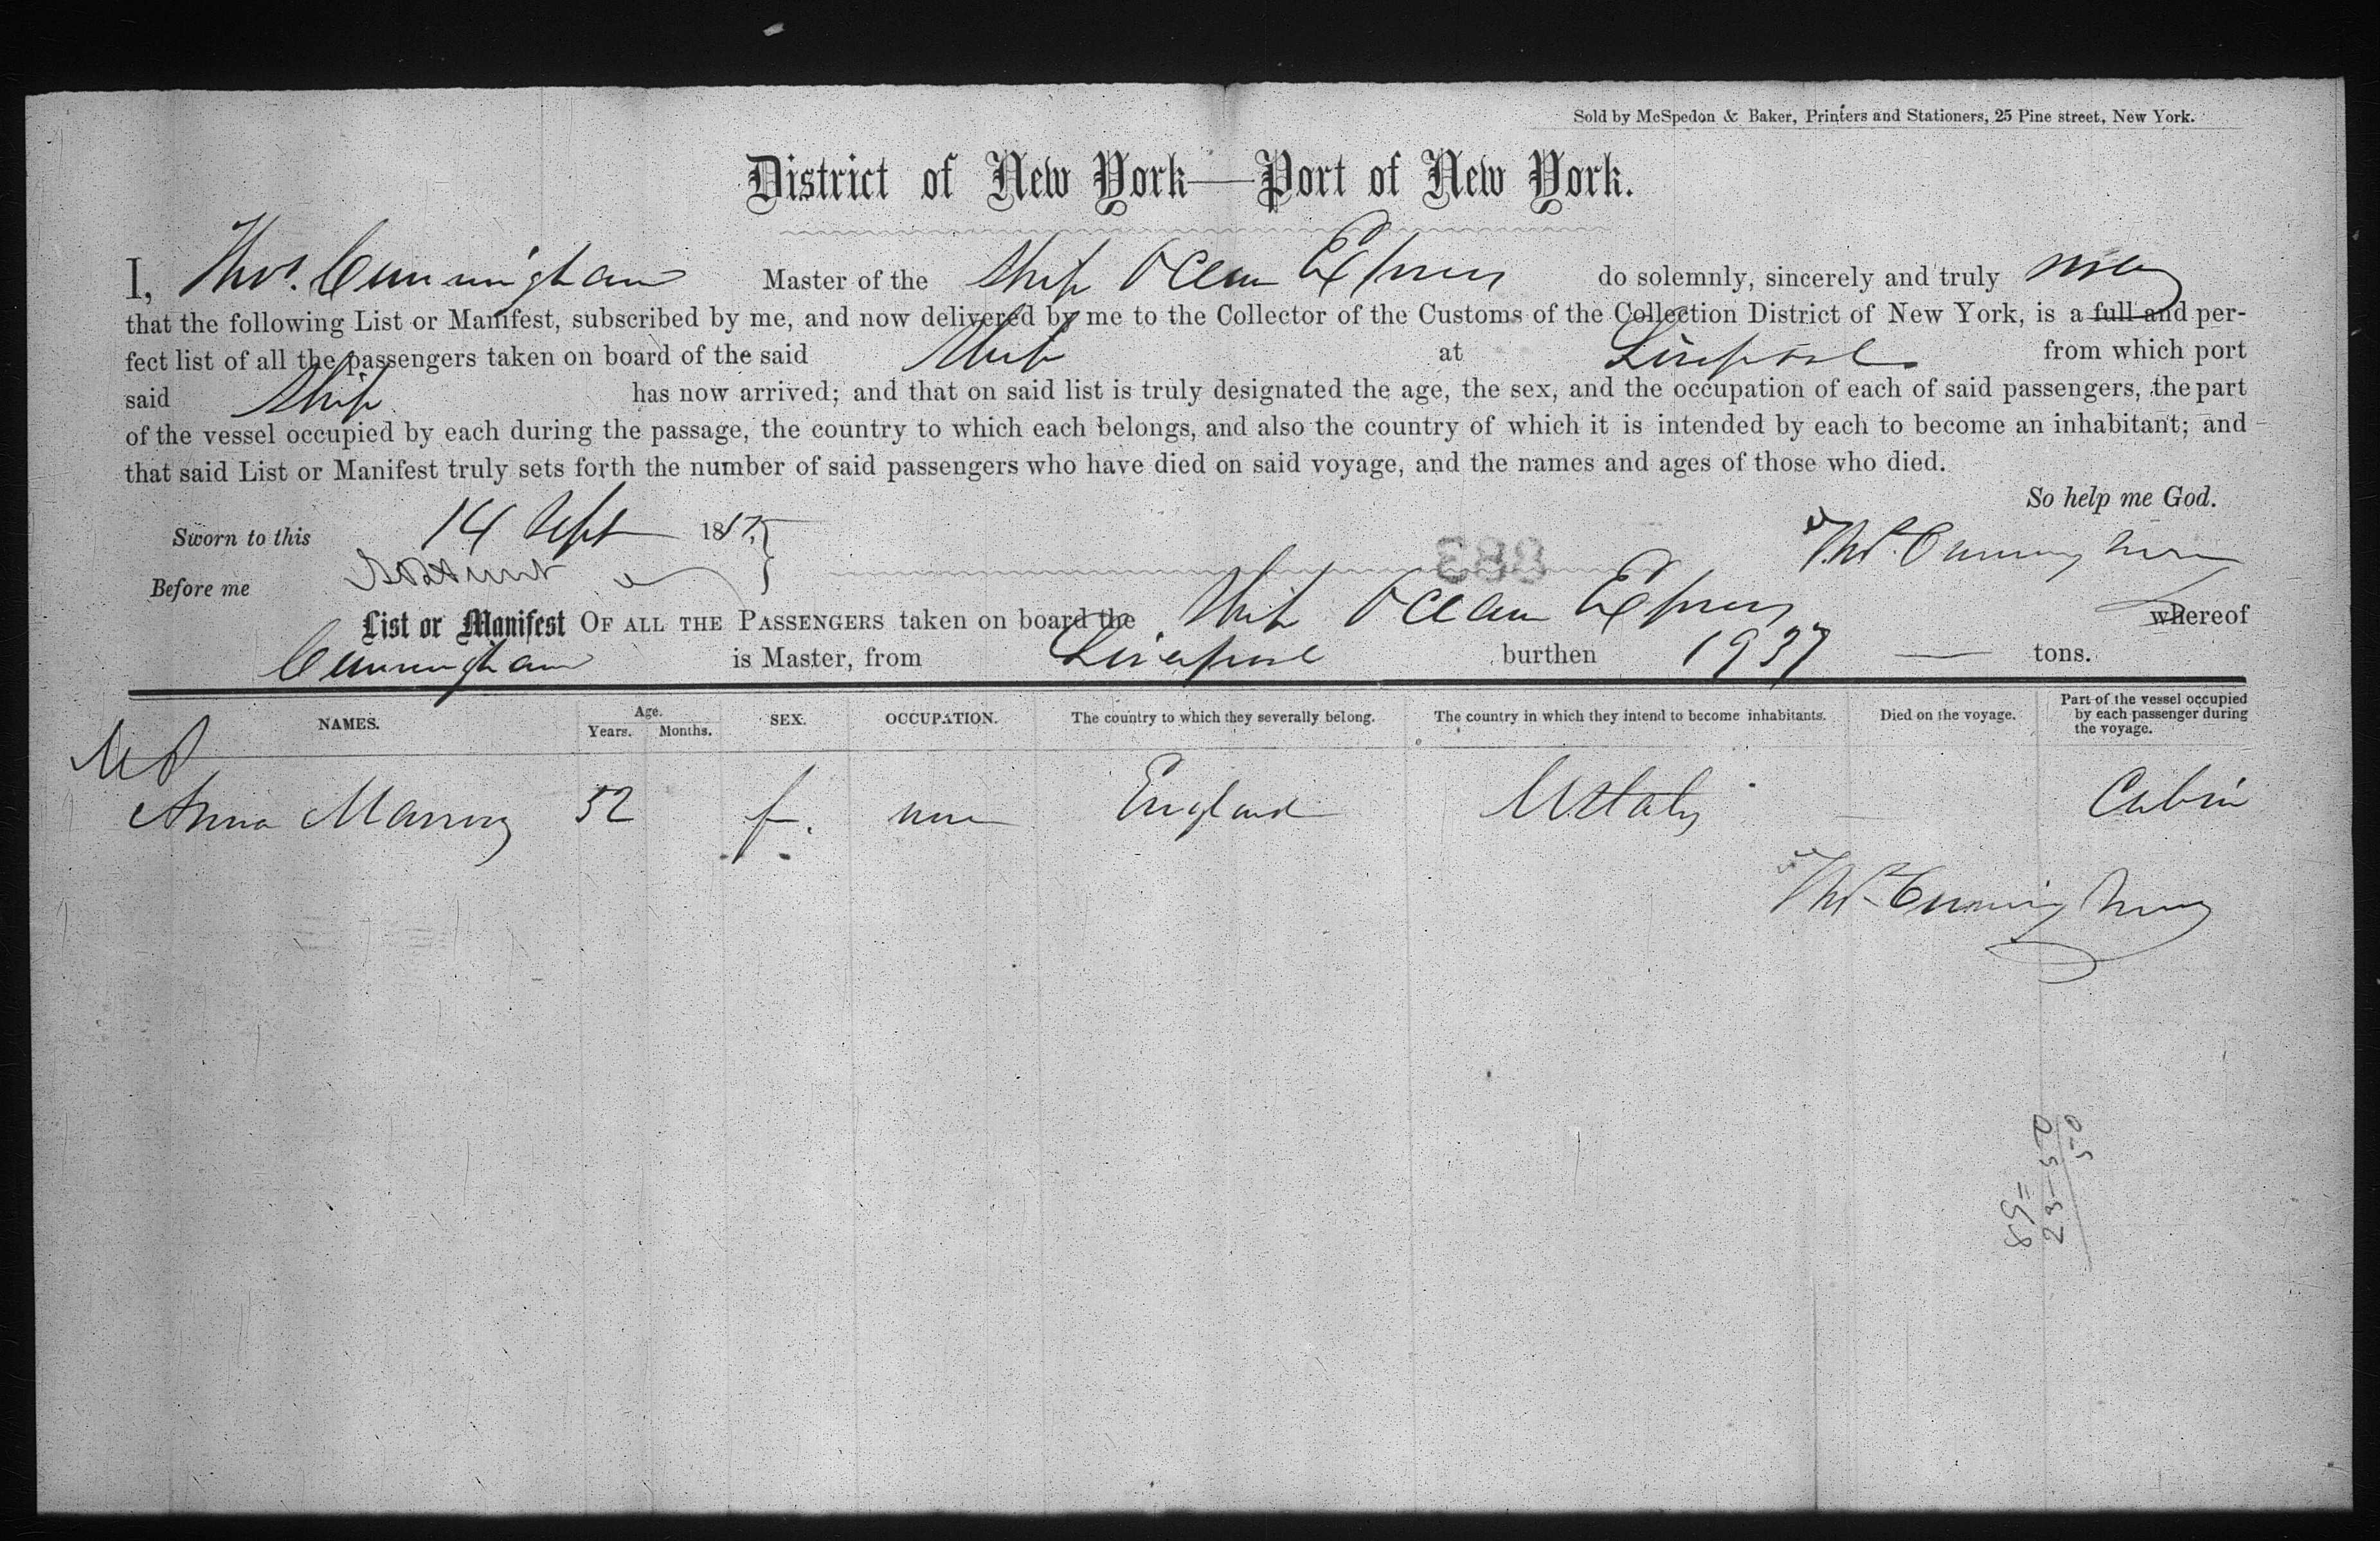 Sold by McSpedon & Baker, Printers and Stationers, 25 Pine street, New York.
District of New York—Port of New York.
I, Thos. Cunningham Master of the Ship Ocean Express do solemnly, sincerely and truly
that the following List or Manifest, subscribed by me, and now delivered by me to the Collector of the Customs of the Collection District of New York, is a full and per-
fect list of all the passengers taken on board of the said Ship at Liverpool from which port
said Ship has now arrived; and that on said list is truly designated the age, the sex, and the occupation of each of said passengers, the part
of the vessel occupied by each during the passage, the country to which each belongs, and also the country of which it is intended by each to become an inhabitant; and
that said List or Manifest truly sets forth the number of said passengers who have died on said voyage, and the names and ages of those who died.
So help me God.
Sworn to this 14 Sept 1857
Thos. Cunningham
Before me
883
List or Manifest OF ALL THE PASSENGERS taken on board the Ship Ocean Express whereof
Cunningham is Master, from Liverpool burthen 1937 tons.
NAMES. Age. Years. Months. SEX. OCCUPATION. The country to which they severally belong. The country in which they intend to become inhabitants. Died on the voyage. Part of the vessel occupied by each passenger during the voyage.
Anna 52 f. none England U States Cabin
Thos. Cunningham
89=
23-50
50